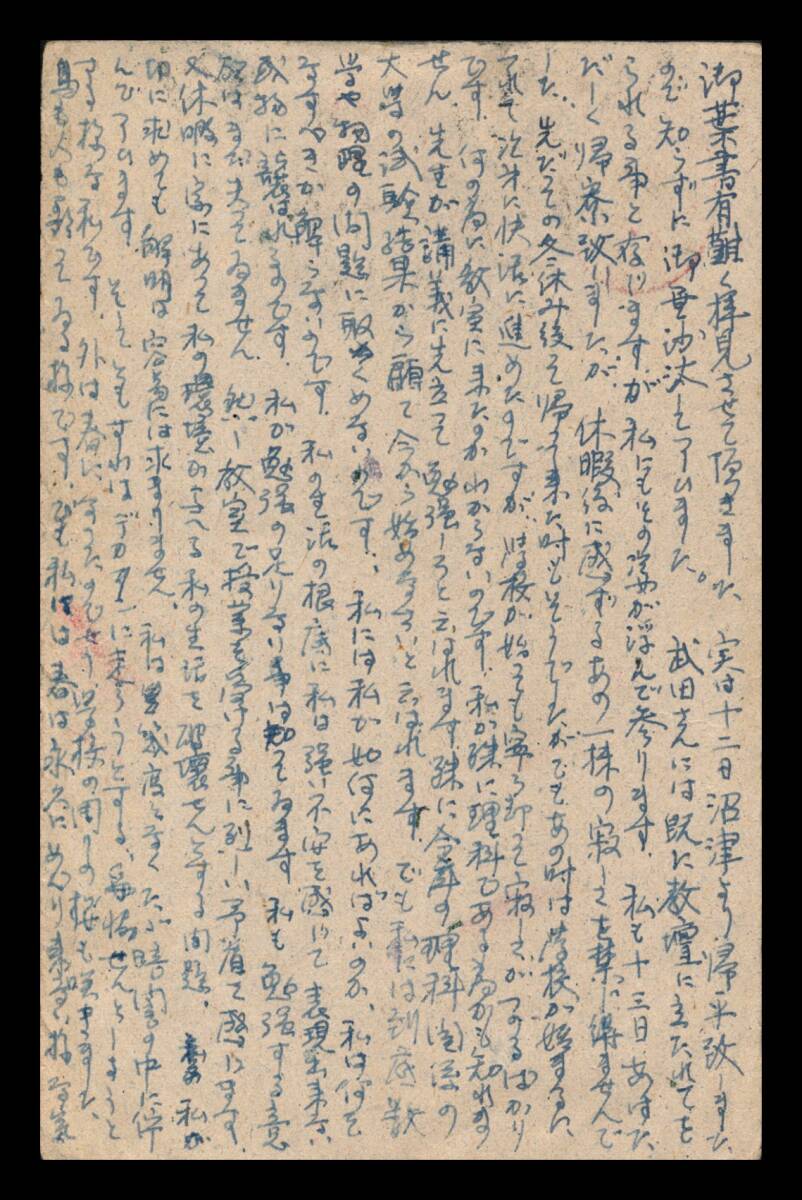 御葉書有難く拝見させて頂きました 実は十二日沼津より帰平致しました
ので知らずに御無沙汰してしひました。 武田さんには既に教壇に立たれてを
られる事と存じますが私にもその姿が浮んで参ります 私も十三日あはた
だしく帰寮致しましたが 休暇後に感ずるあの一抹の寂しさを禁じ得ませんで
した、先だつての冬休み後で帰つて来た時もそうでしたがでもあの時は学校が始まるに
つれて次第に快活に進めたのですが、学校が始つても寧ろ却つて寂しさがつのるばかり
です、何の為に教室に来たのかわからないのです、私が殊に理科である為かも知れま
せん、先生が講義に先立つて 勉強しろと云はれます 殊に今年の理科関係の
大学の試験結果から願て今から始めなさいと云はれます、でも私には到底数
学や物理の問題に取くめないのです、 私には私が如何にあればよいのか、私は何を
なすべきか解らないのです、私の生活の根底に私は強い不安を感じて表現出来ない
或物に襲はれるのです、私が勉強の足りない事は知つてゐます 私も勉強する意
欲はまだ失つてゐません 然し教室で授業を受ける事に烈しい予省て感じます、
又休暇に家にあつて私の環境が与へる私の生活を破壊せんとする問題、 私が
切に求めても 解明は容易には求まりません、私は幾度となくただ暗闇の中に佇
んでしひます そしてともすればデカダンに走らうとする、 せんとしまうと
する様な私です、外は春になつたのでせう 学校の周りの桜も咲きました、
鳥も人も歌つてゐる様です、でも私には春は永久にめぐり来ない様な気